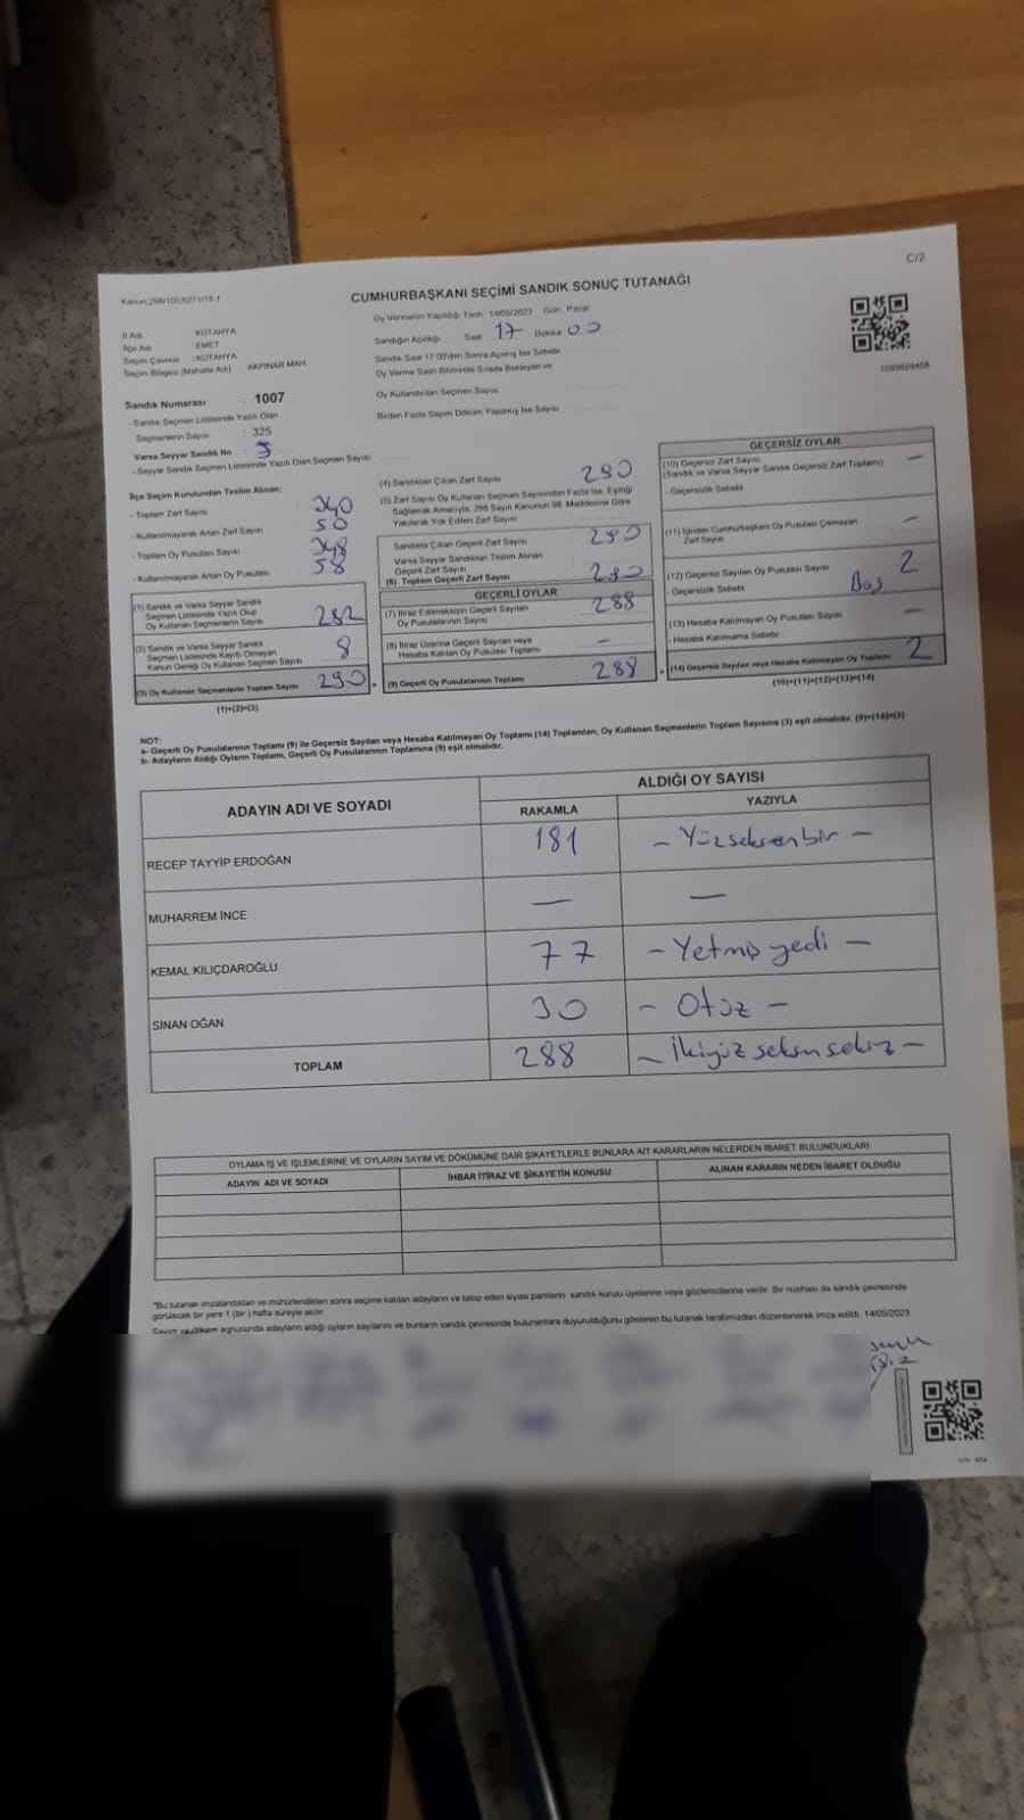 C/2
CUMHURBAŞKANI SEÇİMİ SANDIK SONUÇ TUTANAĞI
Oy Vermenin Yapıldığı Tarih: 14/05/2023 Gün: Pazar
Sandığın Açıldığı Saat 17 Dakika 00
İl Adı KÜTAHYA
İlçe Adı EMET
Seçim Çevresi : KÜTAHYA
Seçim Bölgesi (Mahalle Adı) AKPINAR MAH.
Sandık Numarası : 1007
- Sandık Seçmen Listesinde Yazılı Olan
Seçmenlerin Sayısı : 325
Varsa Seyyar Sandık No :
- Seyyar Sandık Seçmen Listesinde Yazılı Olan Seçmen Sayısı
Sandık Saat 17.00'den Sonra Açılmış İse Sebebi
Oy Verme Saati Bitiminde Sırada Bekleyen ve
Oy Kullandırılan Seçmen Sayısı
Birden Fazla Sayım Döküm Yapılmış İse Sayısı
İlçe Seçim Kurulundan Teslim Alınan;
- Toplam Zarf Sayısı 340
- Kullanılmayarak Artan Zarf Sayısı 50
- Toplam Oy Pusulası Sayısı 348
- Kullanılmayarak Artan Oy Pusulası 58
(1) Sandık ve Varsa Seyyar Sandık
Seçmen Listesinde Yazılı Olup
Oy Kullanan Seçmenlerin Sayısı 282
(2) Sandık ve Varsa Seyyar Sandık
Seçmen Listesinde Kayıtlı Olmayan
Kanun Gereği Oy Kullanan Seçmen Sayısı 8
(3) Oy Kullanan Seçmenlerin Toplam Sayısı 290
(1)+(2)=(3)
(4) Sandıktan Çıkan Zarf Sayısı 290
(5) Zarf Sayısı Oy Kullanan Seçmen Sayısından Fazla İse, Eşitliği
Sağlamak Amacıyla, 298 Sayılı Kanunun 98. Maddesine Göre
Yakılarak Yok Edilen Zarf Sayısı
Sandıkta Çıkan Geçerli Zarf Sayısı 290
Varsa Seyyar Sandıktan Teslim Alınan
Geçerli Zarf Sayısı
(6) Toplam Geçerli Zarf Sayısı 290
GEÇERLİ OYLAR
(7) İtiraz Edilmeksizin Geçerli Sayılan
Oy Pusulalarının Sayısı 288
(8) İtiraz Üzerine Geçerli Sayılan veya
Hesaba Katılan Oy Pusulası Toplamı -
(9) Geçerli Oy Pusulalarının Toplamı 288
GEÇERSİZ OYLAR
(10) Geçersiz Zarf Sayısı -
(Sandık ve Varsa Seyyar Sandık Geçersiz Zarf Toplamı)
- Geçersizlik Sebebi
(11) İçinden Cumhurbaşkanı Oy Pusulası Çıkmayan
Zarf Sayısı -
(12) Geçersiz Sayılan Oy Pusulası Sayısı 2
- Geçersizlik Sebebi Boş
(13) Hesaba Katılmayan Oy Pusulası Sayısı -
- Hesaba Katılmama Sebebi
(14) Geçersiz Sayılan veya Hesaba Katılmayan Oy Toplamı 2
(10)+(11)+(12)+(13)=(14)
NOT:
a- Geçerli Oy Pusulalarının Toplamı (9) ile Geçersiz Sayılan veya Hesaba Katılmayan Oy Toplamı (14) Toplamları, Oy Kullanan Seçmenlerin Toplam Sayısına (3) eşit olmalıdır. (9)+(14)=(3)
b- Adayların Aldığı Oyların Toplamı, Geçerli Oy Pusulalarının Toplamına (9) eşit olmalıdır.
ADAYIN ADI VE SOYADI ALDIĞI OY SAYISI
RAKAMLA YAZIYLA
RECEP TAYYİP ERDOĞAN 181 - Yüzseksenbir -
MUHARREM İNCE - -
KEMAL KILIÇDAROĞLU 77 - Yetmiş yedi -
SİNAN OĞAN 30 - Otuz -
TOPLAM 288 - İkiyüz seksen sekiz -
OYLAMA İŞ VE İŞLEMLERİNE VE OYLARIN SAYIM VE DÖKÜMÜNE DAİR ŞİKAYETLERLE BUNLARA AİT KARARLARIN NELERDEN İBARET BULUNDUKLARI
ADAYIN ADI VE SOYADI İHBAR İTİRAZ VE ŞİKAYETİN KONUSU ALINAN KARARIN NEDEN İBARET OLDUĞU
*Bu tutanak imzalandıktan ve mühürlendikten sonra seçime katılan adayların ve talep eden siyasi partilerin sandık kurulu üyelerine veya gözlemcilerine verilir. Bir nüshası da sandık çevresinde
görülecek bir yere 1 (bir) hafta süreyle asılır.
Sayım döküm sonucunda adayların aldığı oyların sayılarını ve bunların sandık çevresinde bulunanlara duyurulduğunu gösteren bu tutanak tarafımızdan düzenlenerek imza edildi. 14/05/2023